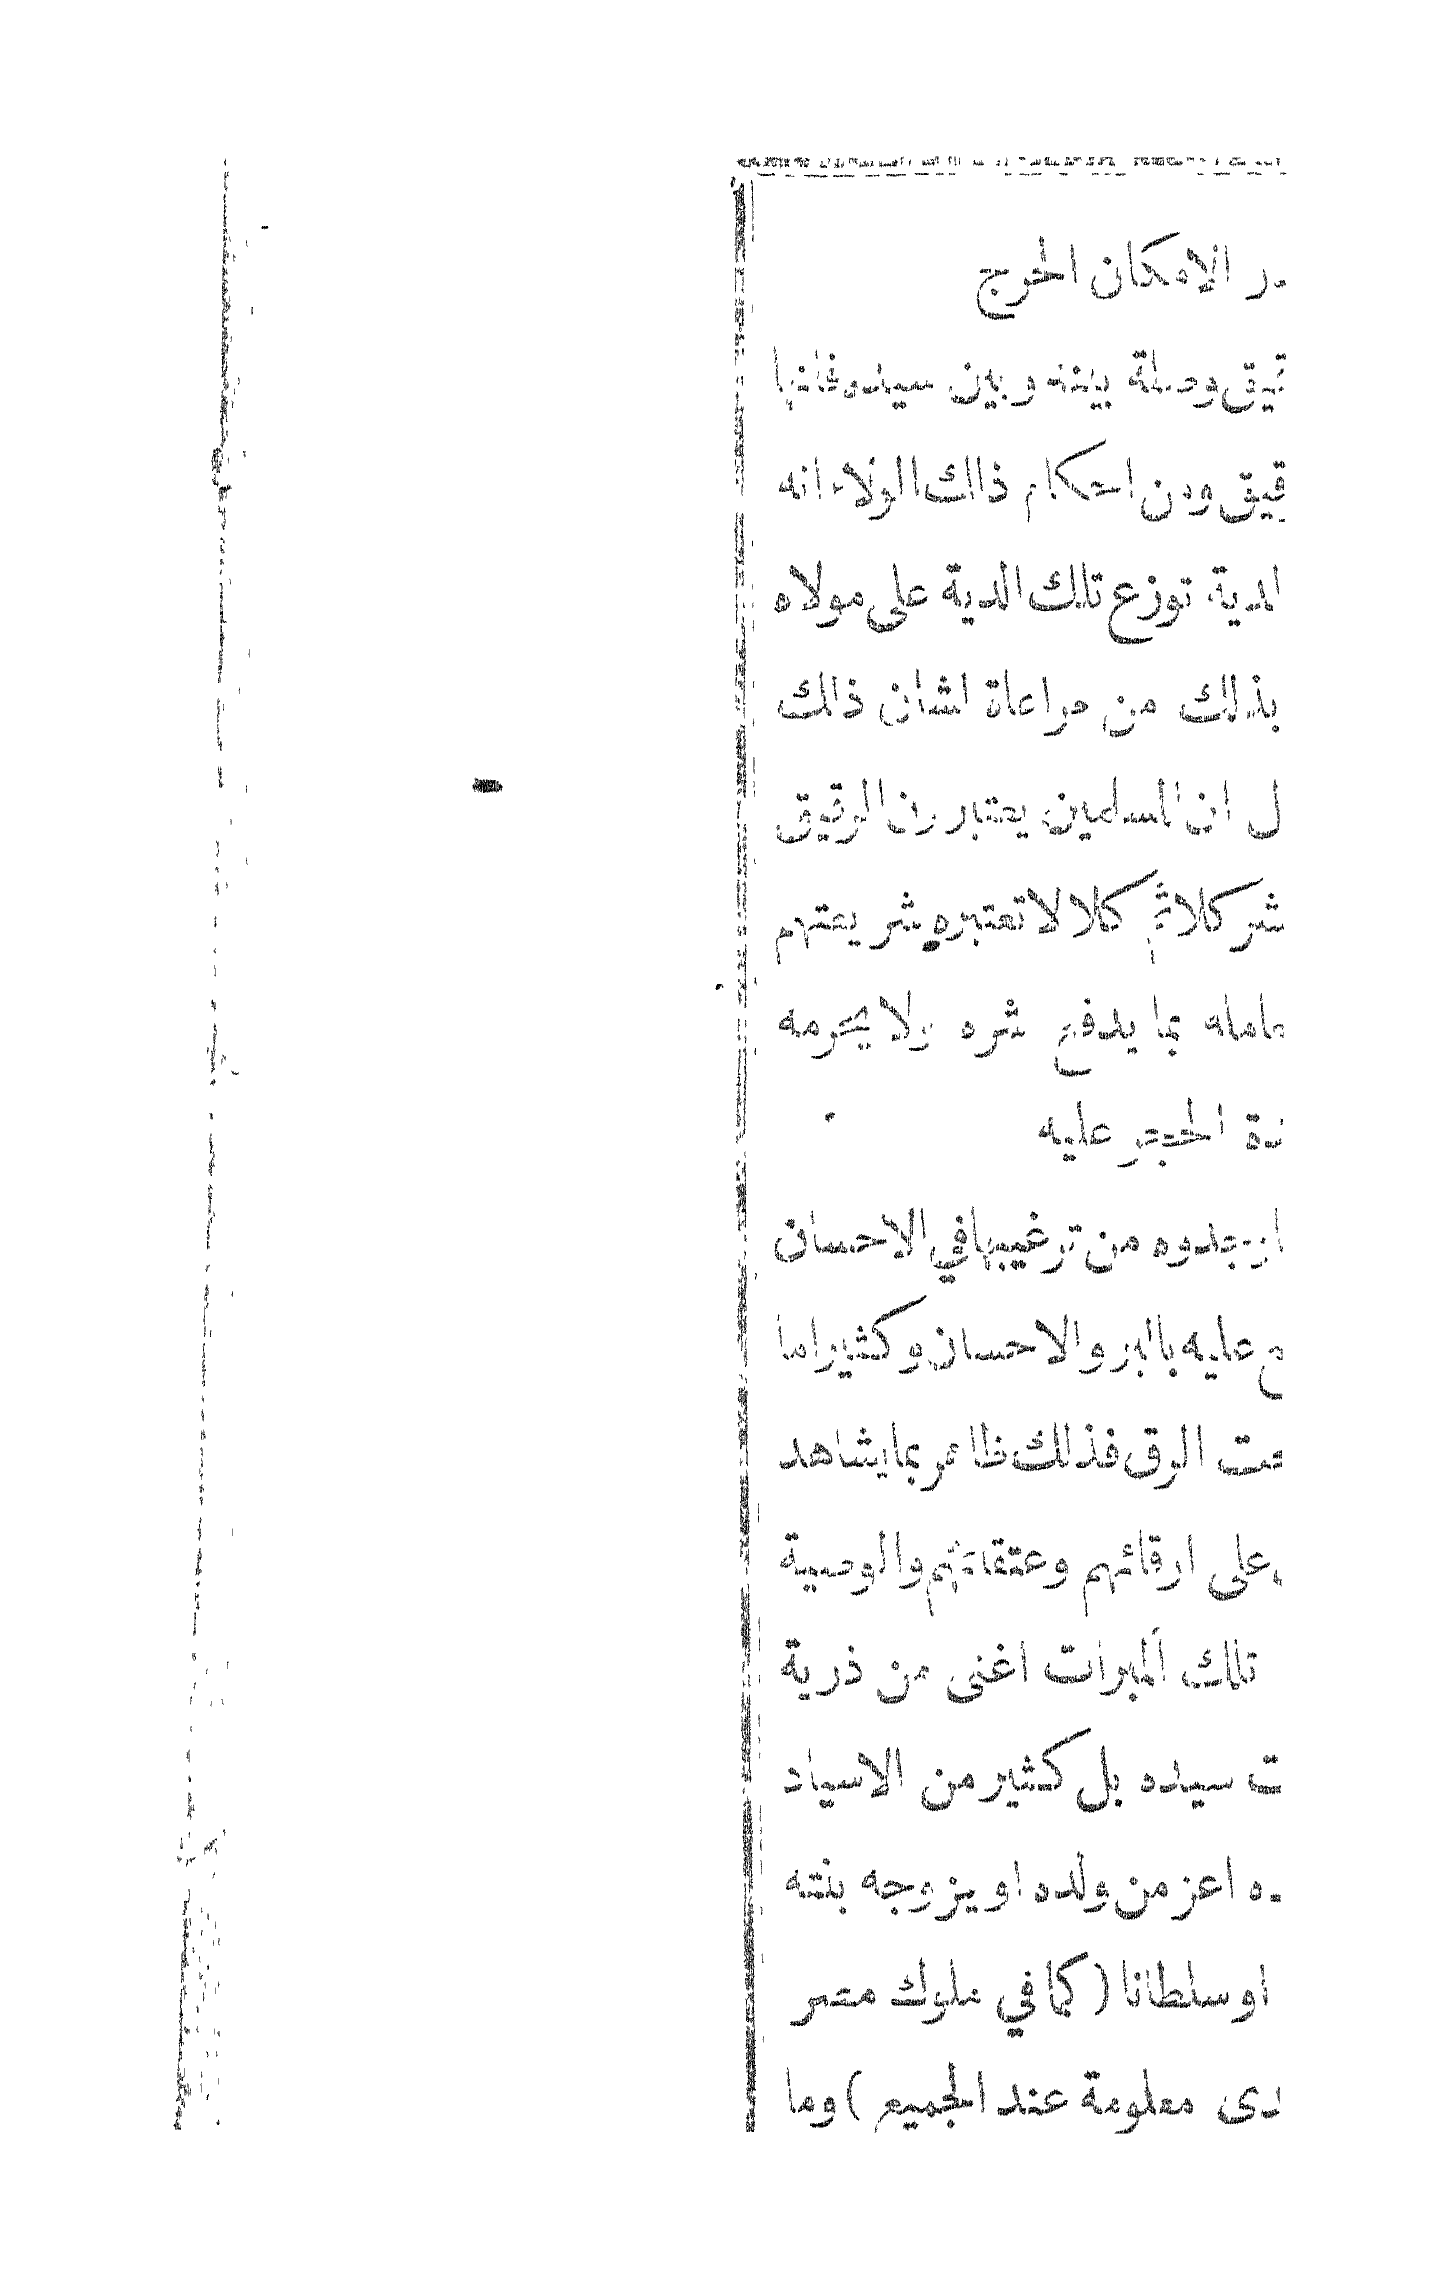 در الامكان الحرج
تيق وصلة بينه وبين سيده فانها
قيق ومن احكام ذلك الولاء انه
الدية توزع تلك الدية على مولاه
بذلك من مراعاة لشان ذلك
ل ان المسلمين يعتبرون الرقيق
شر كلا ثم كلا لا تعتبره شريعتهم
عامله بما يدفع شره ولا يحرمه
دة الحجر عليه
وجدوه من ترغيبها في الاحسان
ع عليه بالبر والاحسان وكثيرا ما
حت الرق فذلك ظاهر بما يشاهد
على ارقائهم وعتقائهم والوصية
تلك المبرات اغنى من ذرية
ت سيده بل كثير من الاسياد
ده اعز من ولده او يزوجه بنته
او سلطانا (كما في ملوك مصر
دى معلومة عند الجميع) وما